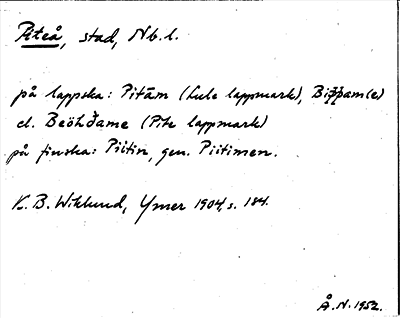 Piteå, stad, Nb.l.
på lappska: Pitām (Lule lappmark), Biŧŧam(e)
el. Beöhđame (Pite lappmark)
på finska: Piitin, gen. Piitimen.
K. B. Wiklund, Ymer 1904, s. 184.
Å. N. 1952.